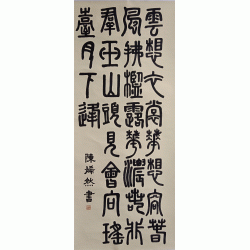 雲想衣裳華想容春
風拂檻露華濃若非
羣玉山頭見會向瑤
臺月下逢
陳然書